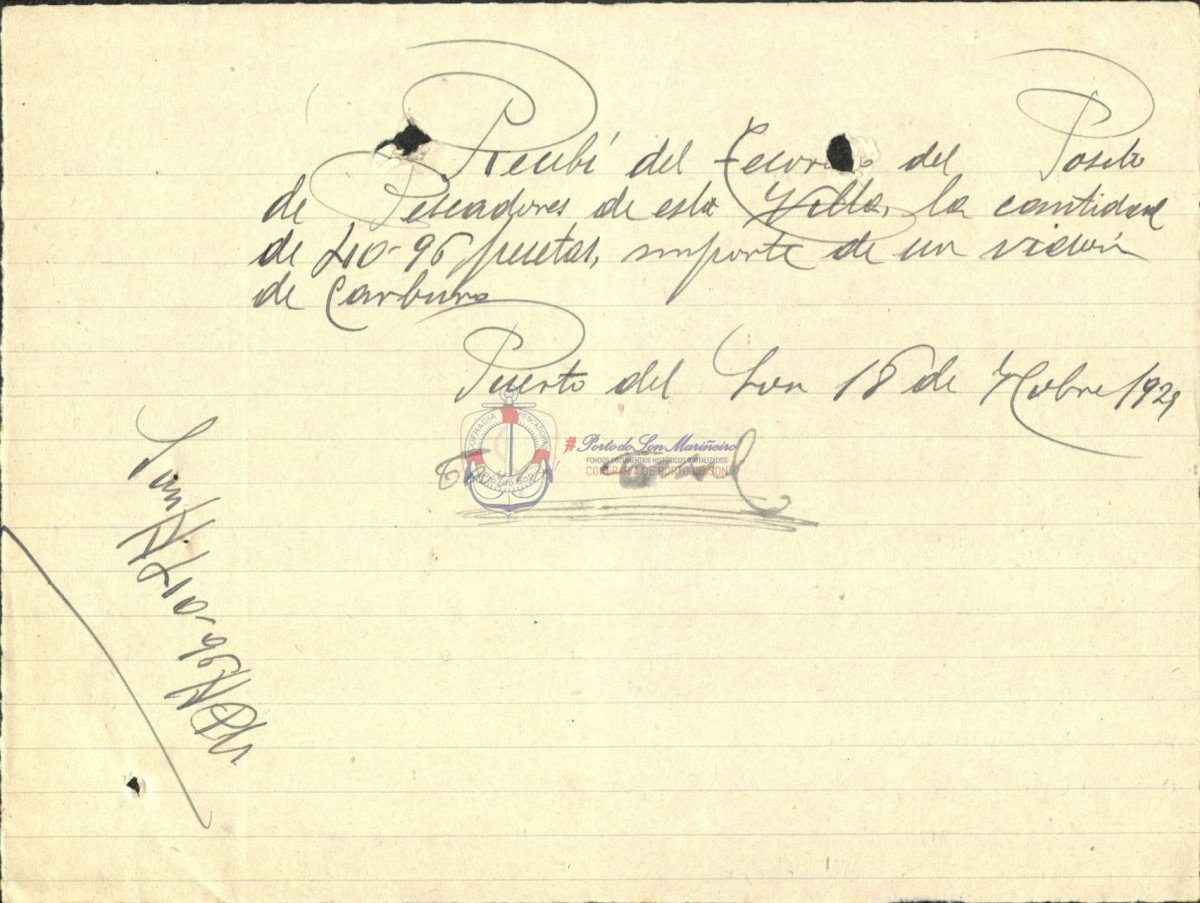 Recibí del Tesorero del Posito
de Pescadores de esta Villa, la cantidad
de 40-96 pesetas, importe de un vidón
de Carburo
Puerto del Son 18 de Nobre 1929
COFRADIA PESCADORES
#Porto do Son Mariñeiro
FONDOS DOCUMENTAIS HISTÓRICOS DIXITALIZADOS
CONFRARÍA DE PORTO DO SON
Son # 40-96 #